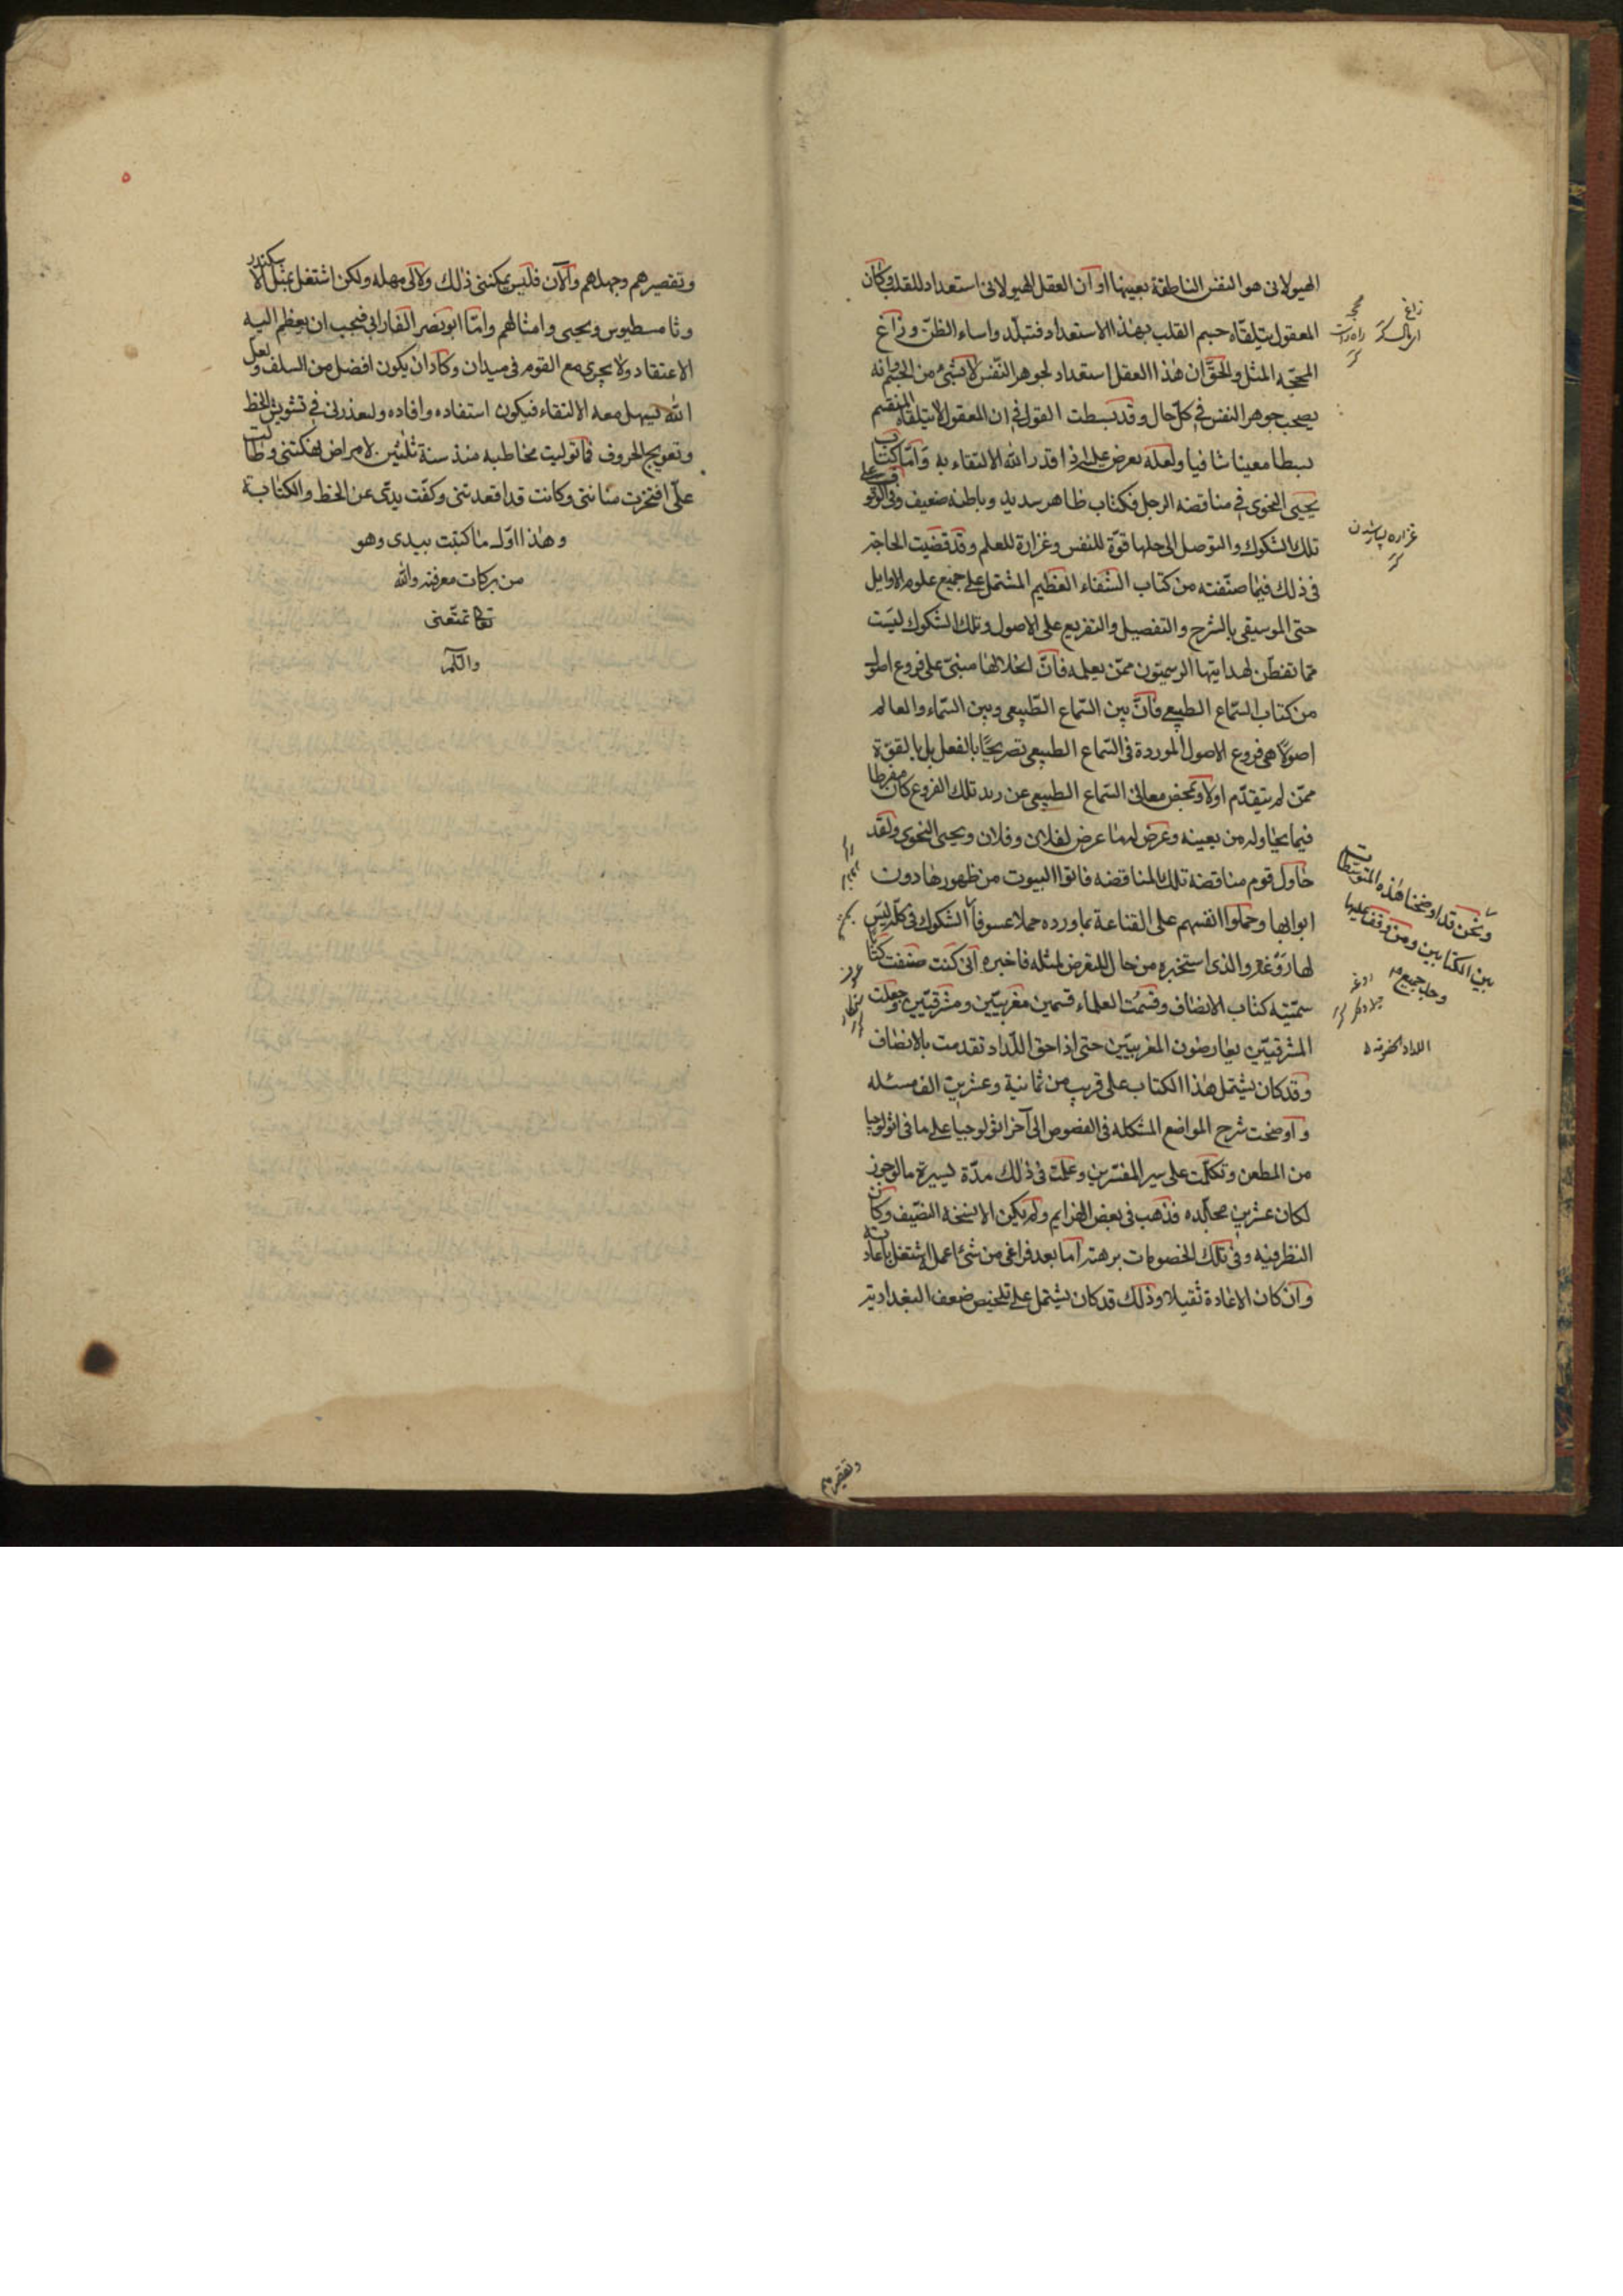 الهيولانى هو النفس الناطقة بعينها او ان العقل الهيولانى استعداد للقلب فكان
المعقول يتلقاه جسم القلب بهذا الاستعداد فتبلّد واساء الظنّ و زاغ
المحجّه المثل والحقّ ان هذا العقل استعداد لجوهر النّفس لا لشئ من الجسم وانه
يصحب جوهر النفس فى كلّ حال وقد بسطت القول فى ان المعقول لا يتلقاه المنقسم
بسطا معينا شافيا ولعله يعرض عليه اذا قدر الله الالتقاء به وامّا كتاب
يحيى النحوى فى مناقضه الرجل فكتاب ظاهر سديد وباطنه ضعيف وفى الوقوف على
تلك الشكوك والتوصل الى حلها قوّة للنفس وغزارة للعلم وقد قضيت الحاجة
فى ذلك فيما صنّفته من كتاب الشّفاء العظيم المشتمل على جميع علوم الاوايل
حتى الموسيقى بالشرح والتفصيل والتفريع على الاصول وتلك الشكوك ليست
ممّا تفطّن لهدايتها الرسميّون ممّن يعلمه فانّ انحلالها مبنىّ على فروع اصول
من كتاب السّماع الطبيعى فانّ بين السّماع الطّبيعى وبين السّماء والعالم
اصولا هى فروع الاصول الموردة فى السّماع الطبيعى تصريحًا بالفعل بل بالقوّة
ممّن لم يتقدّم اولا وتمخض معانى السّماع الطبيعى عن زبد تلك الفروع كان مفرطا
فيما يحاوله من بعينه وعرض لها ما عرض لفلان وفلان ويحيى النحوى ولقد
حاول قوم مناقضة تلك المناقضه فاتوا البيوت من ظهورها دون
ابوابها وحملوا انفسهم على القناعة بما ورده حملا عسوفا الشكوك فى كلّه ليس
لها روغة والذى استخبره من حال التعرض لمثله فاخبره انى كنت صنفت كتابا
سمّيته كتاب الانصاف وقسمت العلماء قسمين مغربيّين ومشرقيّين وجعلت
المشرقيّين يعارضون المغربيّين حتى اذا حق اللّداد تقدمت بالانصاف
وقد كان يشتمل هذا الكتاب على قريب من ثمانية وعشرين الف مسئله
و اوضحت شرح المواضع المشكله فى الفصوص الى آخر اثولوجيا على ما فى اثولوجيا
من المطعن وتكلّمت على سير المفسّرين وعملت فى ذلك مدّة يسيرة ما لو حرز
لكان عشرين مجلّده فذهب فى بعض الهزايم ولم يكن الا نسخة التصنيف وكان
النظر فيه وفى تلك الخصومات برهته اما بعد فراغى من شئ اعمله اشتغل باعادته
وان كان الاعادة ثقيلا وذلك قد كان يشتمل على تلخيص ضعف البغدادية
زاغ
غزاره بسيار شدن
ونحن قد اوضحنا هذه المتوسطات
بين الكتابين ومن وقف عليها
وحل جميع
وتقصيرهم
٥
وتقصيرهم وجهلهم والآن فليس يمكننى ذلك ولا لى مهله ولكن اشتغل بمثل الاسكندر
وثامسطيوس ويحيى وامثالهم وامّا ابو نصر الفارابى فيجب ان يعظم اليه
الاعتقاد ولا يجرى مع القوم فى ميدان وكاد ان يكون افضل من السلف ولعل
الله يسهل معه الالتقاء فيكون استفاده وافاده وليعذرنى فى تشويش الخط
وتعويج الحروف فما توليت مخاطبه منذ سنة ثلثين لامراض نهكتنى وطالت
علّى افتخرت مثانتى وكانت قد اقعدتنى وكفّت يدىّ عن الخط والكتابة
وهذا اوّل ما كتبت بيدى وهو
من بركات معرفته والله
تعالى يمتّعنى
والسّلام